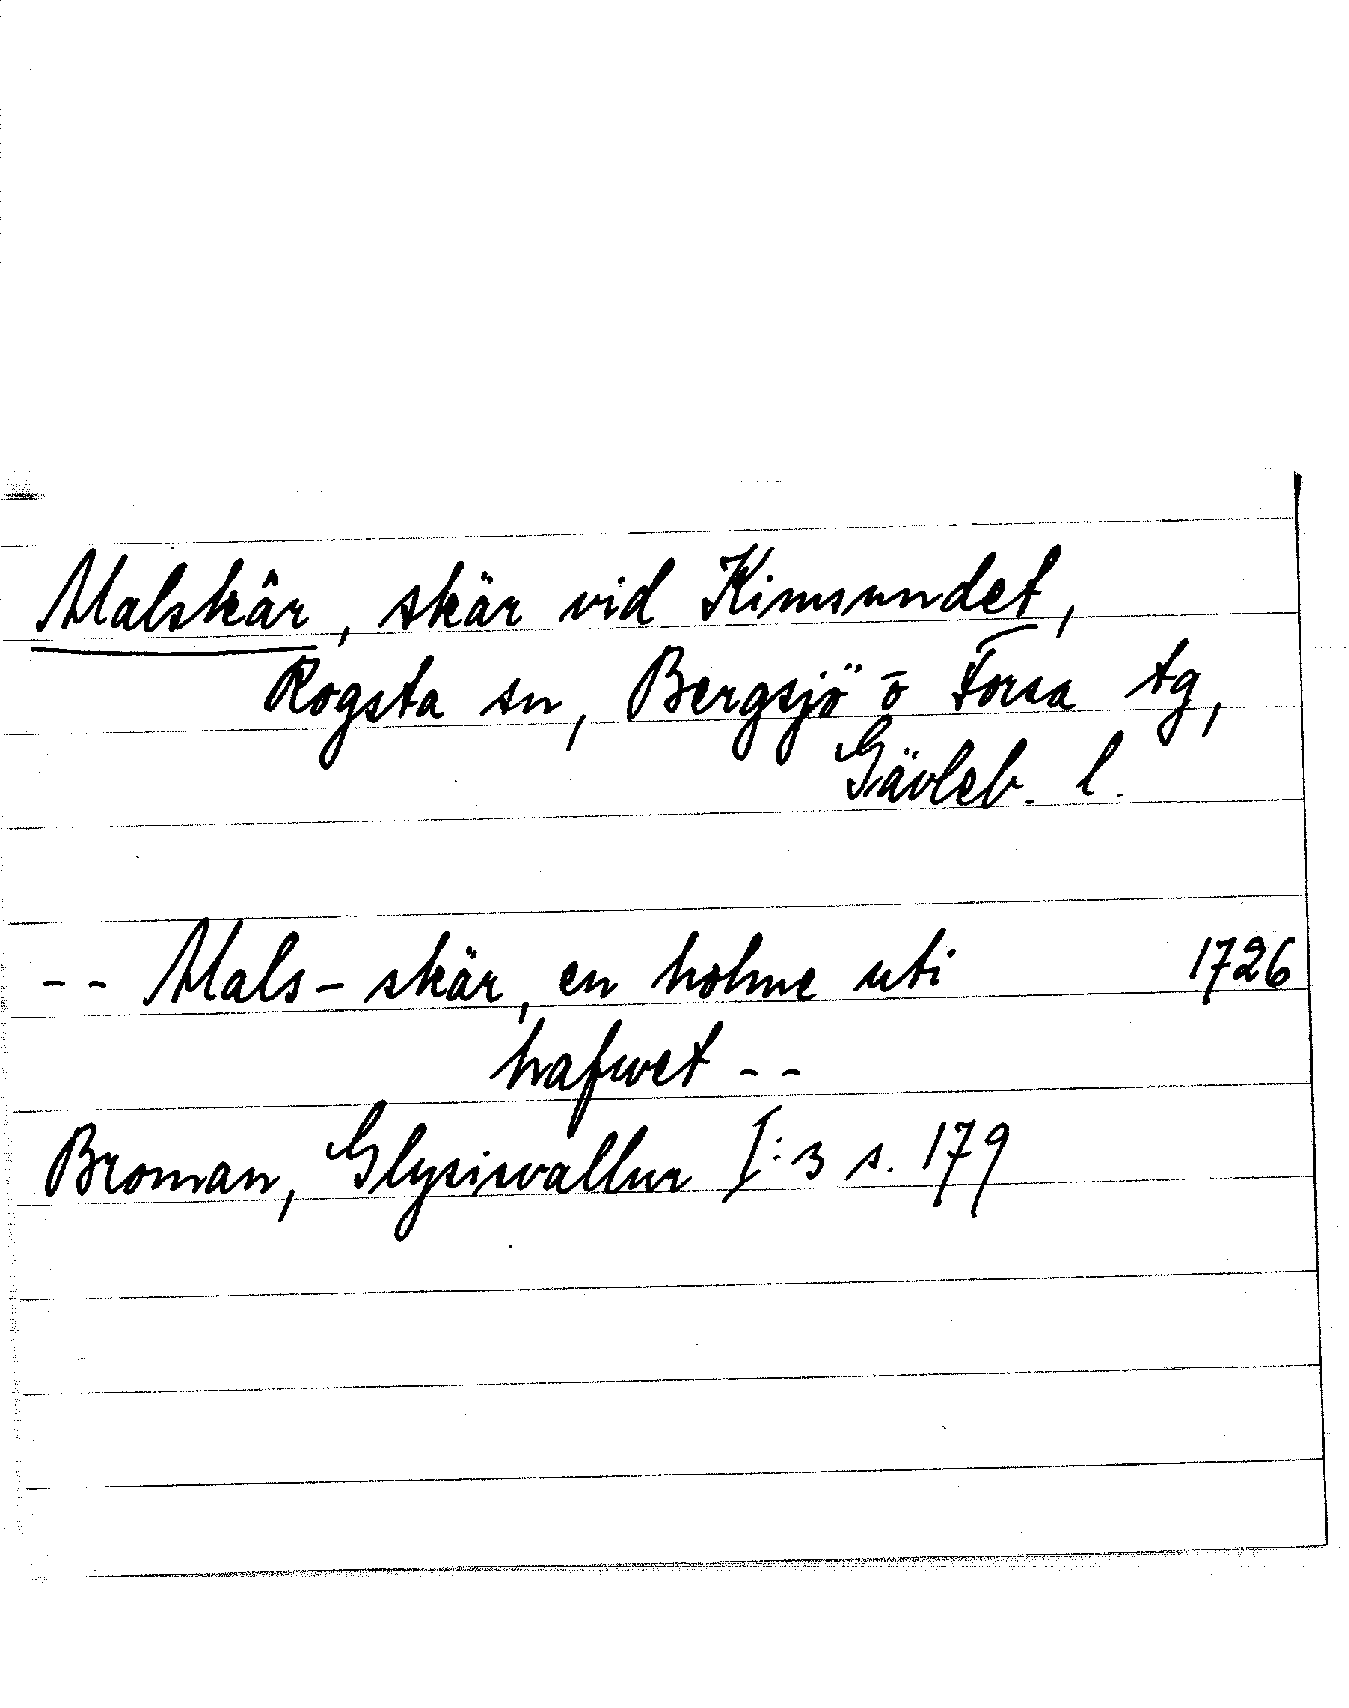 Malskär, skär vid Kinnsundet,
Rogsta sn, Bergsjö o Forsa tg,
Gävleb. l.
-- Mals-skär, en holme uti 1726
hafwet --
Broman, Glysisvallur I:3 s. 179